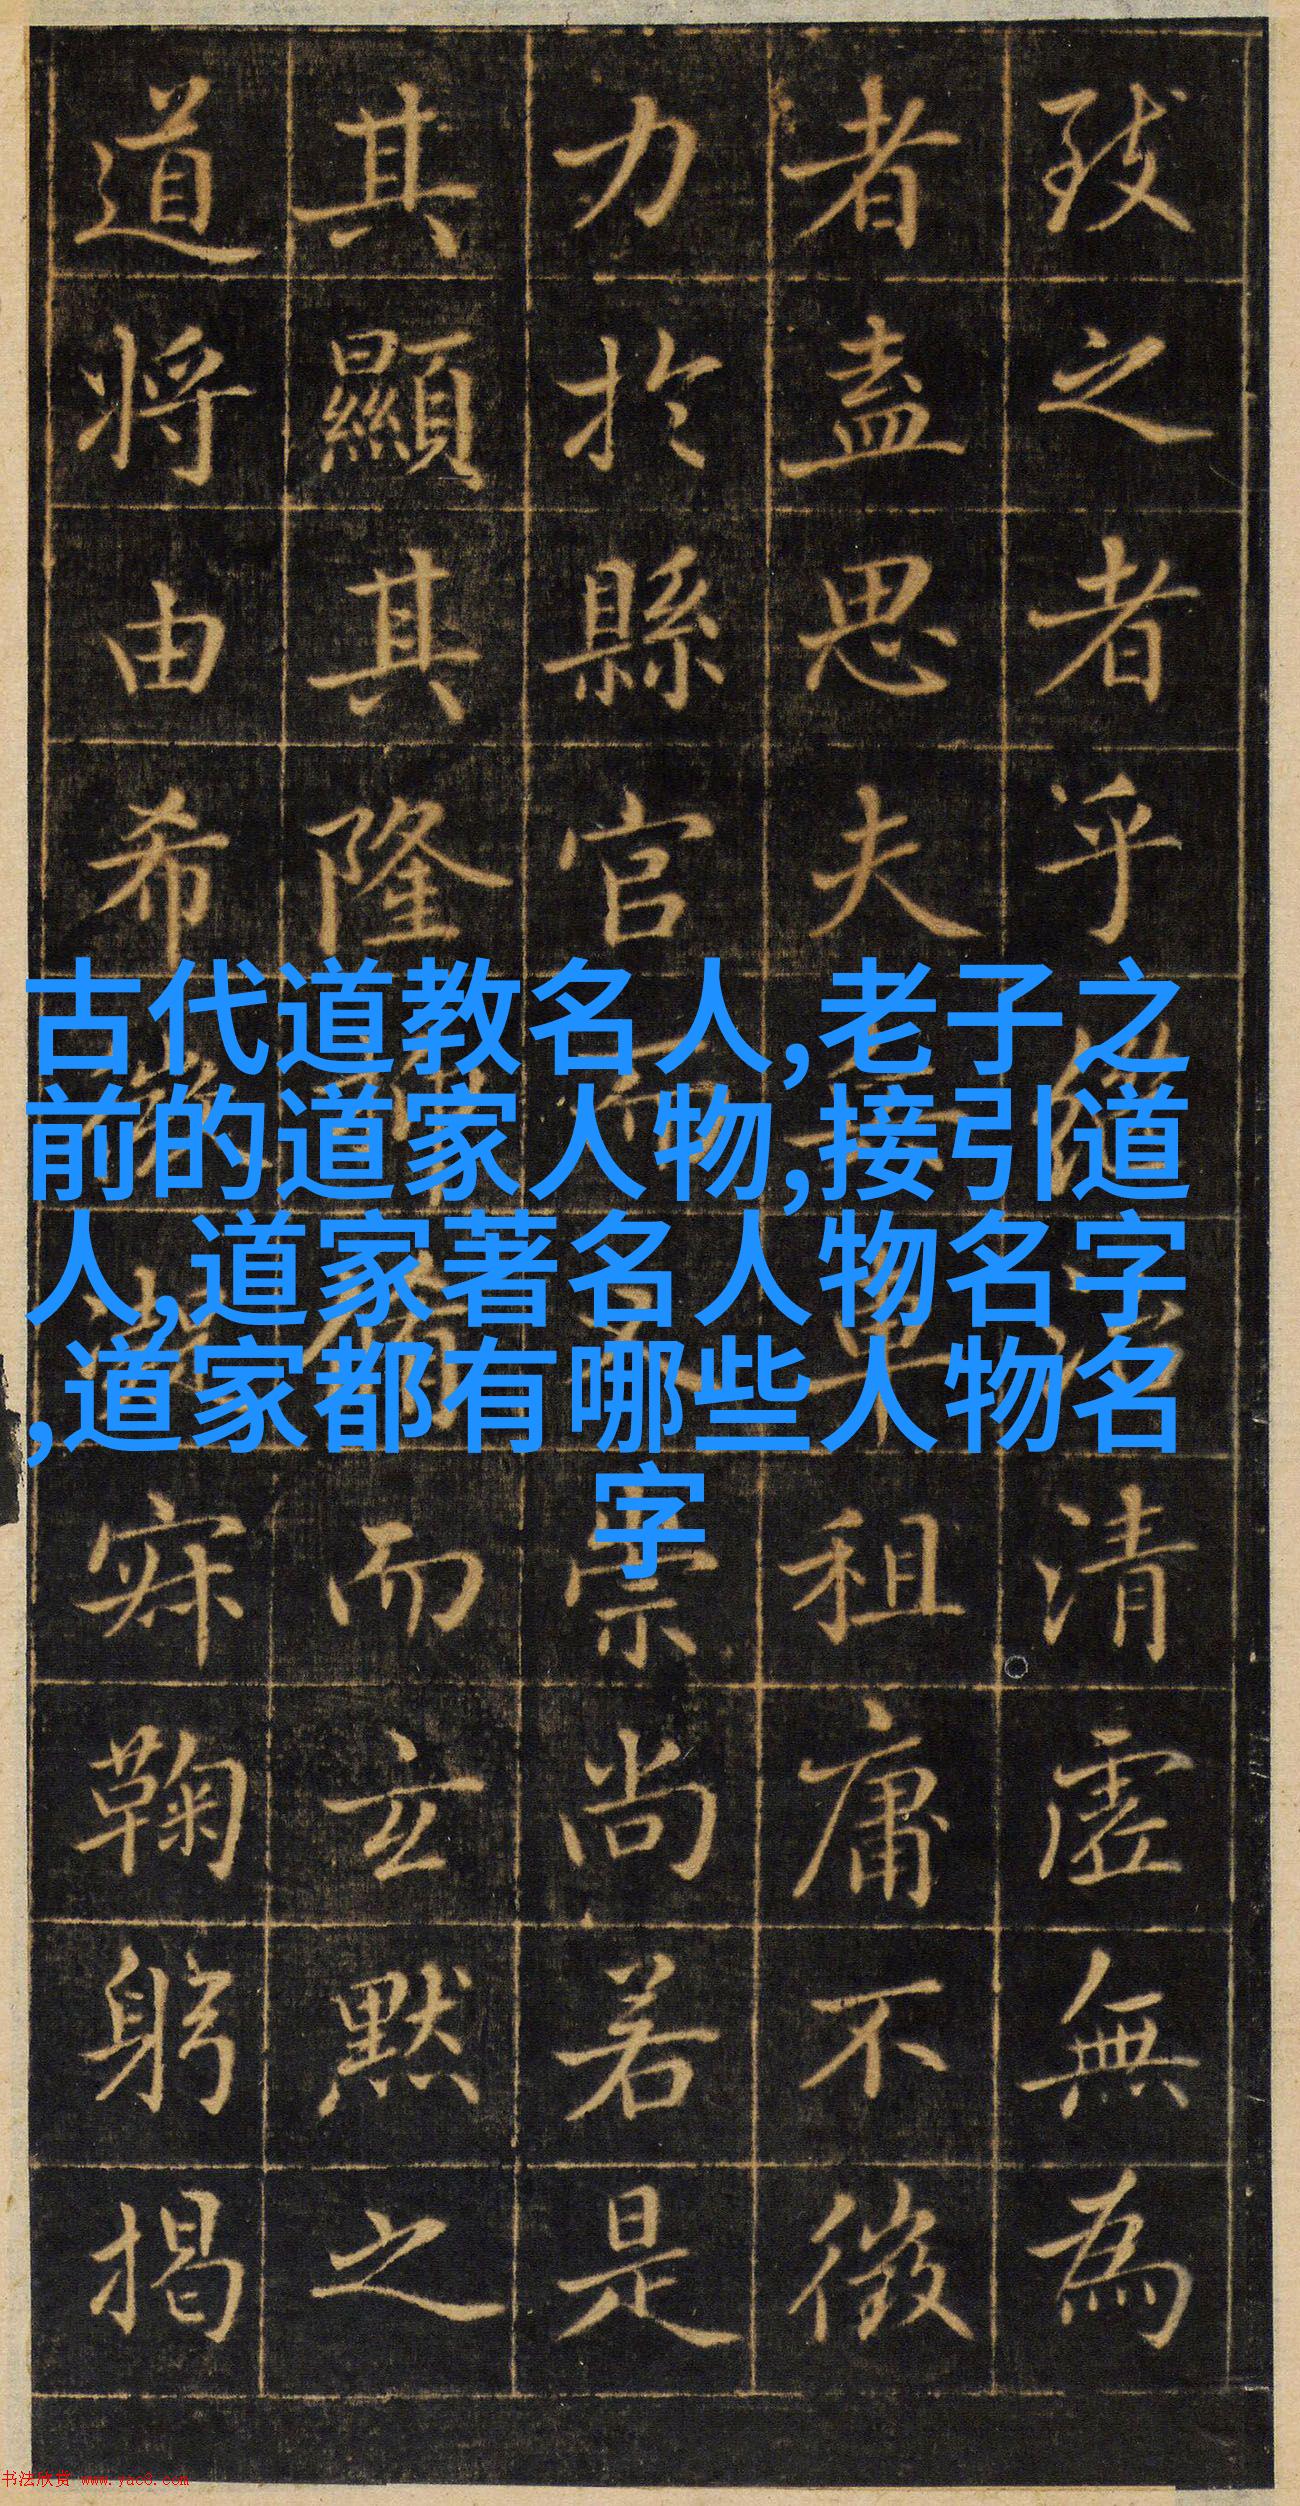 致之者乎清虛無為
者盖思夫租庸不徵
力於縣官崇尚若是
其顯其隆而玄默之
道將由希寂鞠躬揭
古代道教名人,老子之
前的道家人物,接引道
人,道家著名人物名字
,道家都有哪些人物名
字
书法欣赏 www.yac8.com